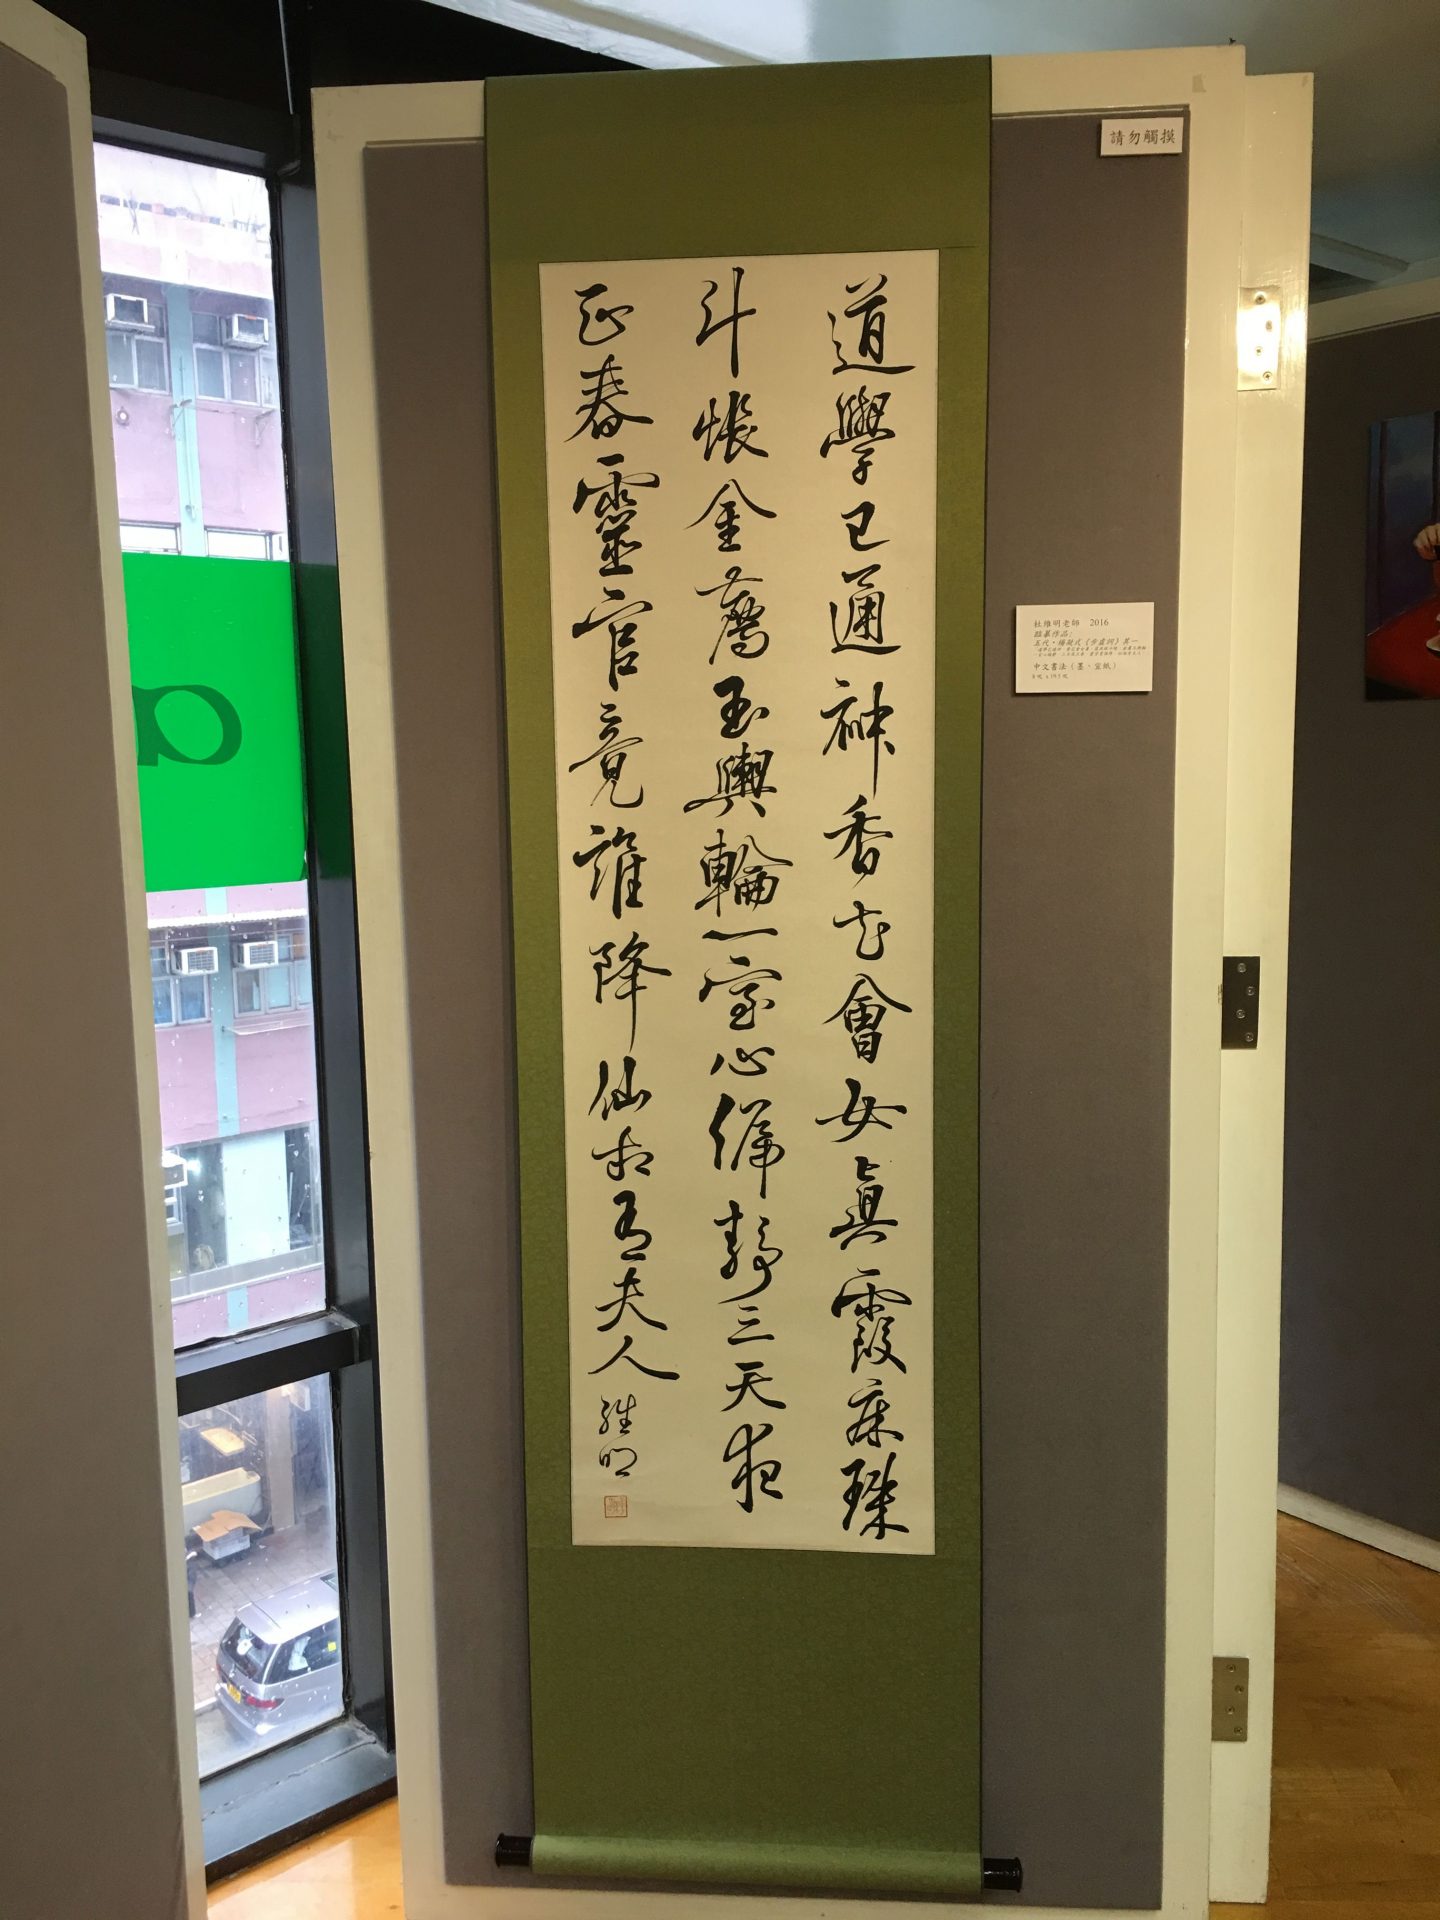 道學已通神香花會女真霞床珠
斗帳金薦玉輿輪一室心偏靜三天夜
正春靈官竟誰降仙相有夫人
維明
請勿觸摸
杜維明老師 2016
臨摹作品:
五代·楊凝式《步虛詞》其一
中文書法（墨、宣紙）